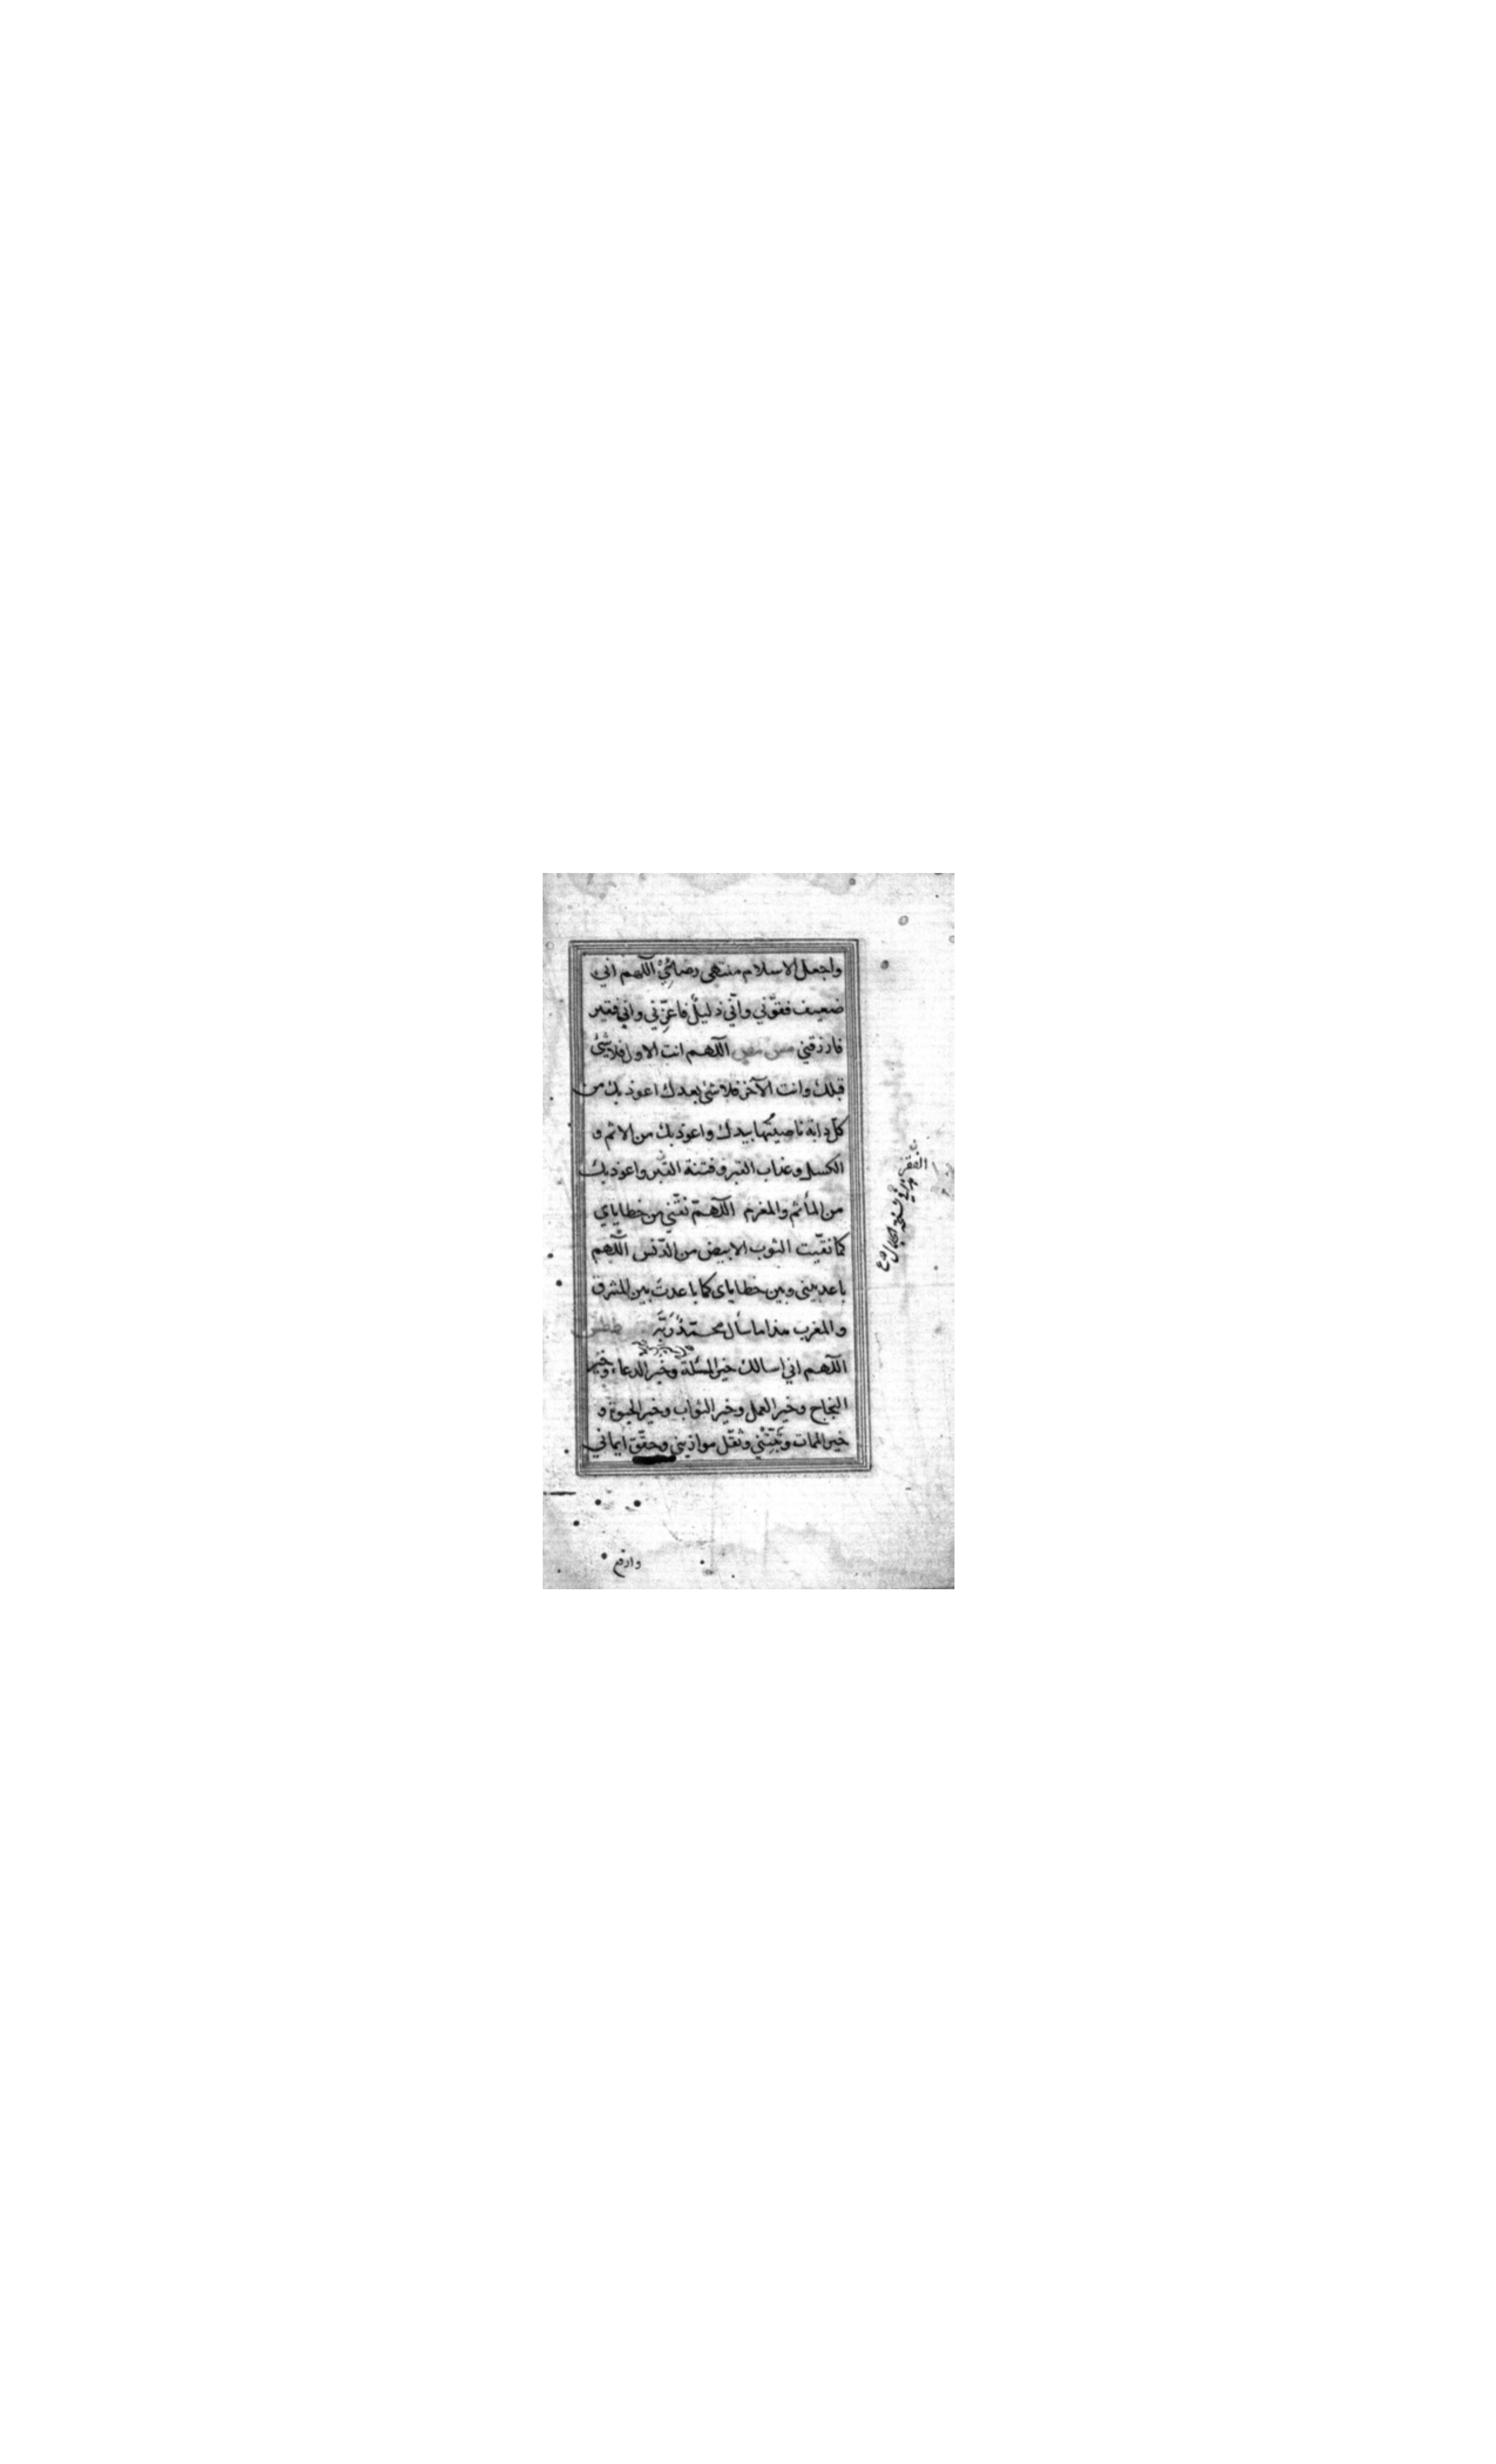 واجعل الاسلام منتهى رضائي اللهم اني
ضعيف فقوّني وانّي ذليلٌ فاعزّني واني فقير
فارزقني مس مص اللهم انت الاول فلا شئ
قبلك وانت الآخر فلا شئ بعدك اعوذ بك من
كلّ دابة ناصيتُها بيدك واعوذ بك من الاثم و
الكسل وعذاب القبر وفتنة القبر واعوذ بك
من المأثم والمغرم اللهمّ نقّني من خطاياي
كما نقّيت الثوب الابيض من الدّنس اللّهم
باعد بيني وبين خطاياي كما باعدت بين المشرق
والمغرب هذا ما سأل محمّدٌ رَبَّه طط مس
اللهم اني اسالك خير المسئلة وخير الدعاء وخير
النجاح وخير العمل وخير الثواب وخير الحيوة و
خير الممات وثَبِّتْني وثقّل موازيني وحقّق ايماني
وارفع